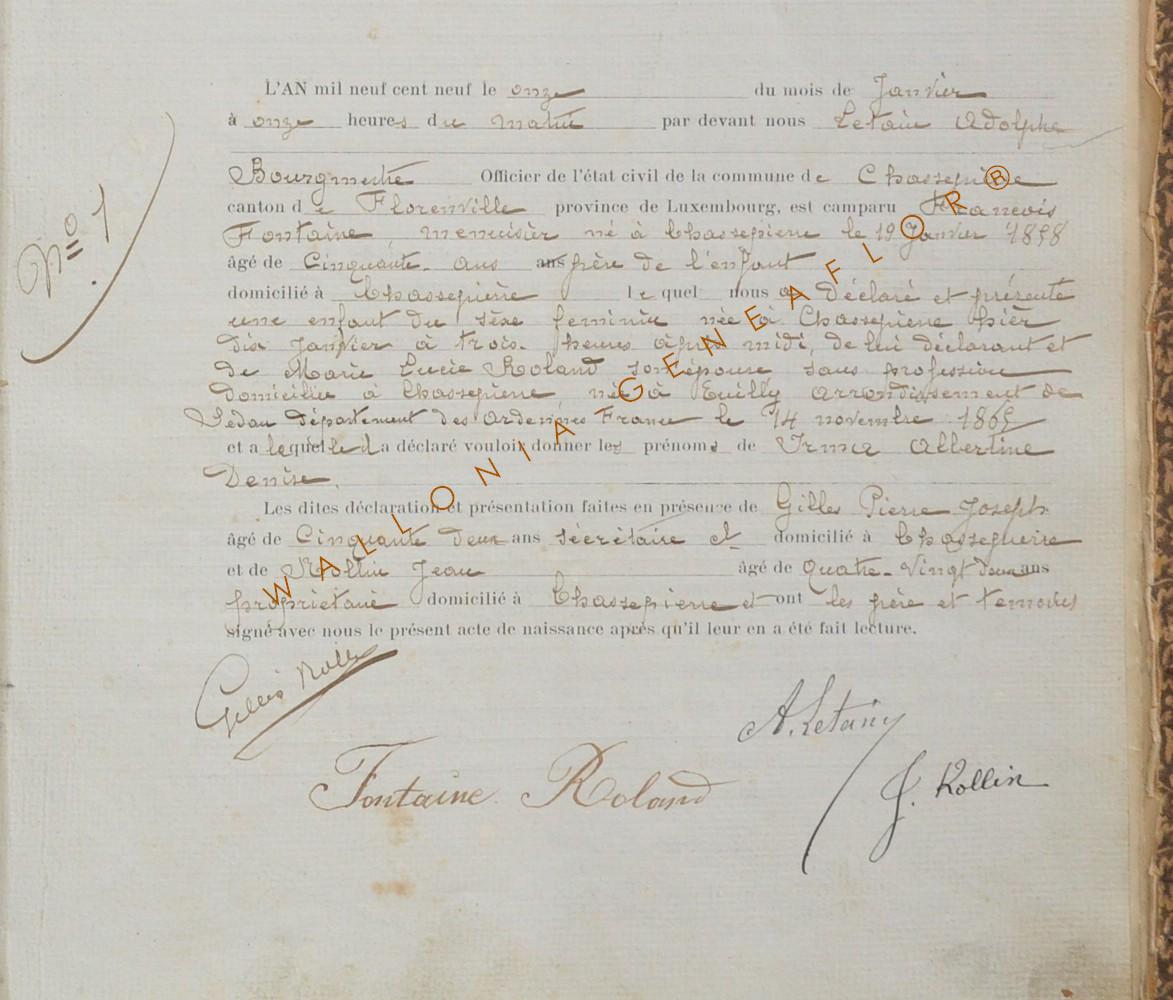 L'AN mil neuf cent neuf le onze du mois de Janvier
à onze heures du matin par devant nous Letain Adolphe
Bourgmestre Officier de l'état civil de la commune de Chassepierre
canton de Florenville province de Luxembourg, est camparu Francois
Fontaine, menuisier né à Chassepierre le 19 Janvier 1858
âgé de Cinquante. ans ans père de l'enfant
domicilié à Chassepierre lequel nous a déclaré et présenté
une enfant du sèxe feminin née à Chassepierre hièr
dix Janvier à trois. heures àprès midi, de lui déclarant et
de Marie Lucie Roland son épouse sans profession
domiciliée à Chassepierre, née à Euilly arrondissement de
Sedan département des Ardennes France le 14 novembre 1865
et a lequelle Il a déclaré vouloir donner les prénoms de Irma Albertine
Denise.
Les dites déclaration et présentation faites en présence de Gilles Pierre Joseph
âgé de Cinquante deux ans sécrétaire et domicilié à Chassepierre
et de Rollin Jean âgé de quatre-vingt deux ans
propriétaire domicilié à Chassepierre et ont les père et temoins
signé avec nous le présent acte de naissance après qu'il leur en a été fait lecture.
N° 1
Gilles
A. Letain
Fontaine Roland
J. Rollin
WALLONIA GENEAFLOR ®